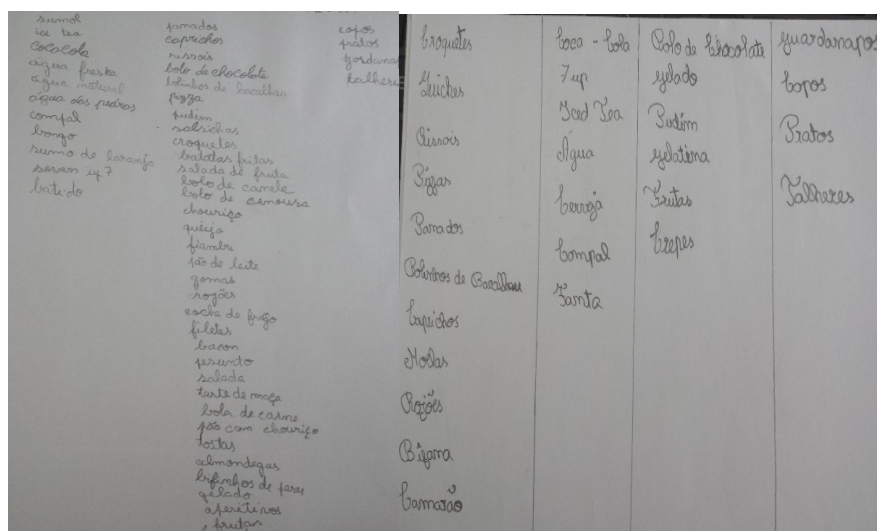 sumol
ice tea
cocacola
água freska
água natural
água das pedras
compal
bongo
sumo de laranja
batido
panados
caprichos
russois
bolo de chocolate
bolinhos de bacalhau
pizza
pudim
salsichas
croquetes
batatas fritas
salada de fruta
bolo de canela
bolo de cenoura
chouriço
queijo
fiambre
pão de leite
gomas
rojões
filetes
bacon
presunto
salada
tarte de maçã
bola de carne
pão com chouriço
tostas
almondegas
gelado
aperitivos
frutas
copos
pratos
talheres
Croquetes
Quiches
Rissois
Pizzas
Panados
Bolinhos de Bacalhau
Caprichos
Moelas
Rojões
Bifana
Camarão
Coca-Cola
7up
Iced Tea
Água
Cerveja
Compal
Fanta
Bolo de Chocolate
gelado
Pudim
gelatina
Frutas
Crepes
guardanapos
Copos
Pratos
Talheres